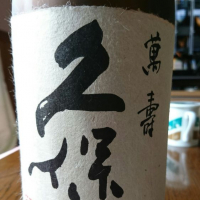 久保
萬壽